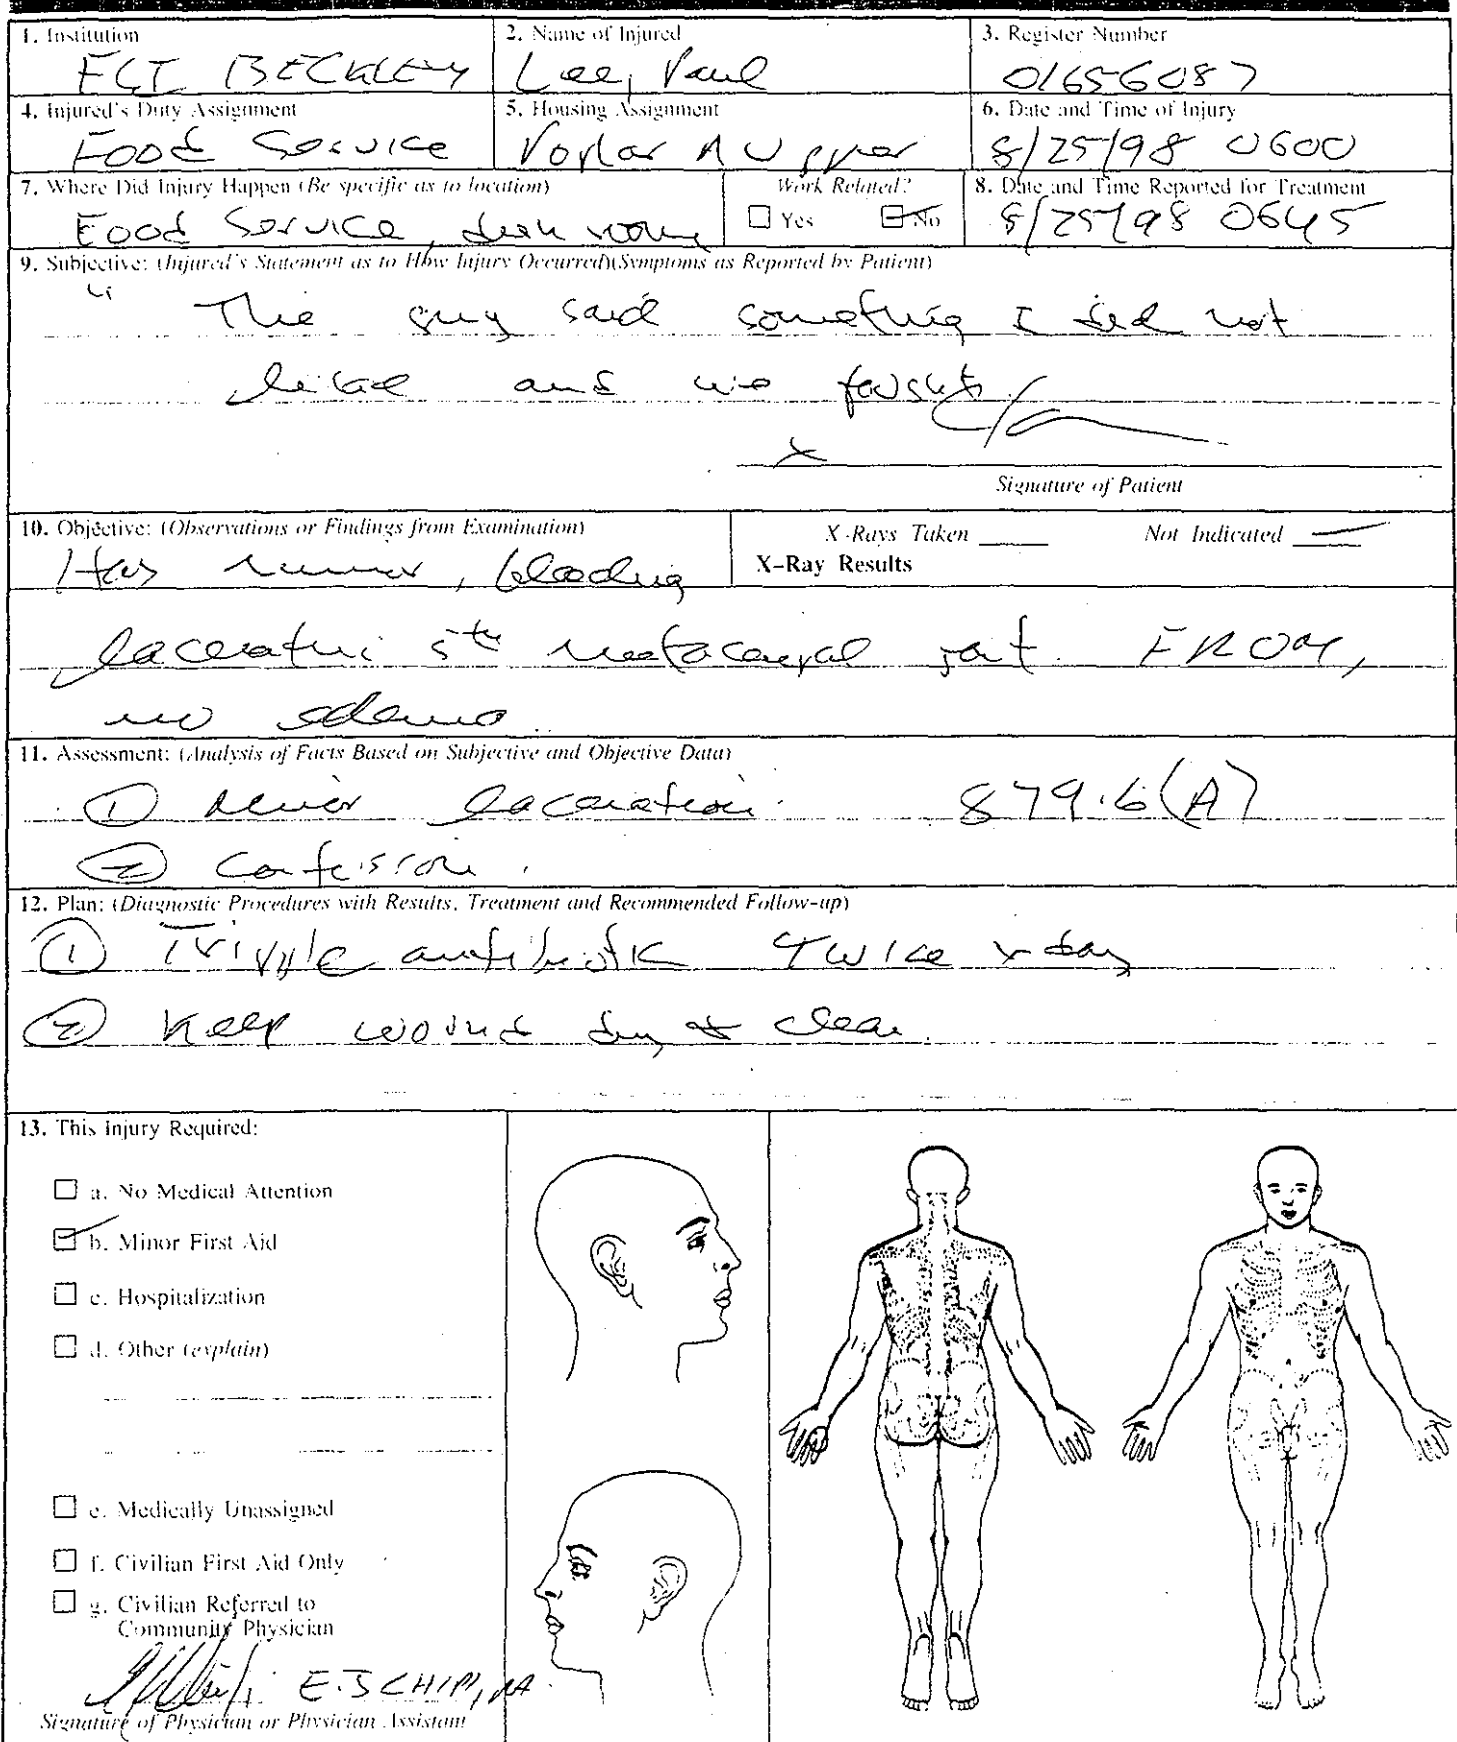 1. Institution
FCI BECKLEY
2. Name of Injured
Lee, Paul
3. Register Number
01656087
4. Injured's Duty Assignment
Food Service
5. Housing Assignment
Poplar A Upper
6. Date and Time of Injury
8/25/98 0600
7. Where Did Injury Happen (Be specific as to location)
Food Service, dish room
Work Related?
Yes No
8. Date and Time Reported for Treatment
8/25/98 0645
9. Subjective: (Injured's Statement as to How Injury Occurred)(Symptoms as Reported by Patient)
" The guy said something I did not
like and we fought
X
Signature of Patient
10. Objective: (Observations or Findings from Examination)
X-Rays Taken Not Indicated
X-Ray Results
Has minor, bleeding
laceration 5th metacarpal joint FROM,
no edema.
11. Assessment: (Analysis of Facts Based on Subjective and Objective Data)
① Minor laceration. 879.6(A)
② Contusion.
12. Plan: (Diagnostic Procedures with Results, Treatment and Recommended Follow-up)
① Triple antibiotic twice x day
② Keep wound dry & clean.
13. This Injury Required:
a. No Medical Attention
b. Minor First Aid
c. Hospitalization
d. Other (explain)
e. Medically Unassigned
f. Civilian First Aid Only
g. Civilian Referred to
Community Physician
Signature of Physician or Physician Assistant